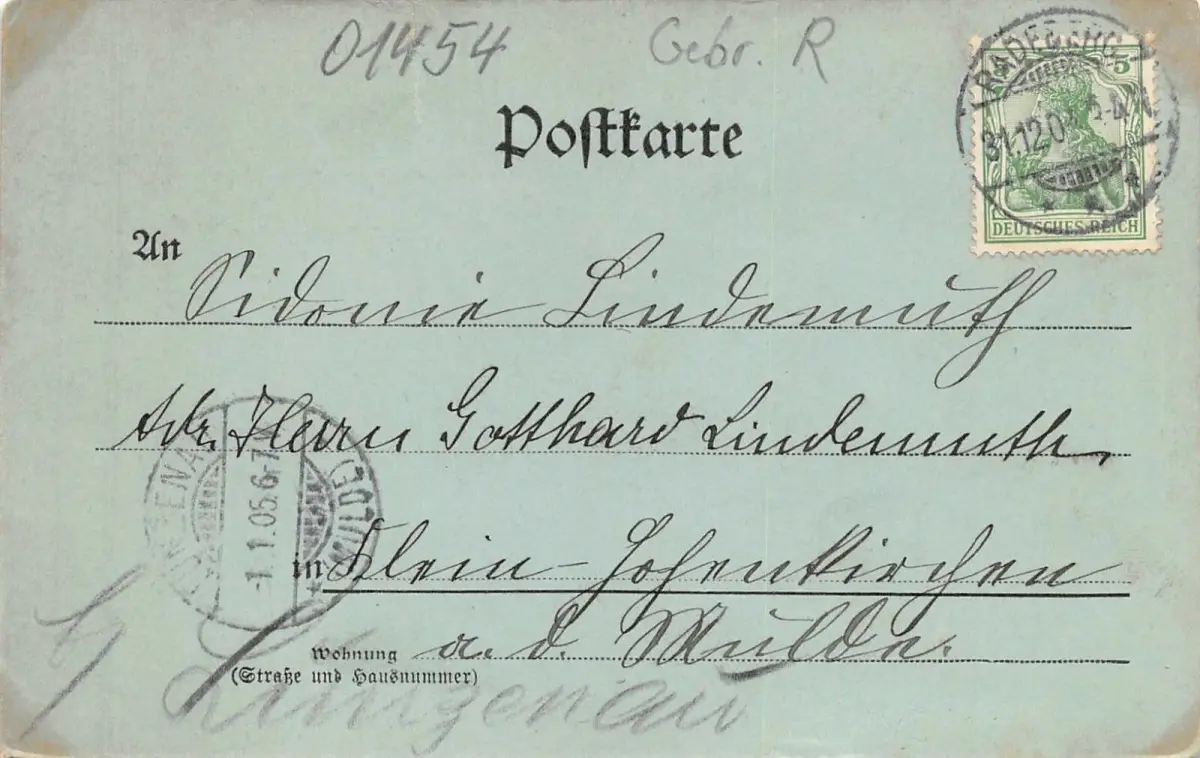 01454 Gebr. R
RADEBERG
31.12.04
5
DEUTSCHES REICH
Postkarte
An Sidonie Lindemuth
Adr. Herrn Gotthard Lindemuth,
LUNZENAU
1.1.05.6-7
in Klein-Hohenkirchen
a. d. Mulde.
Wohnung
(Straße und Hausnummer)
Lunzenau